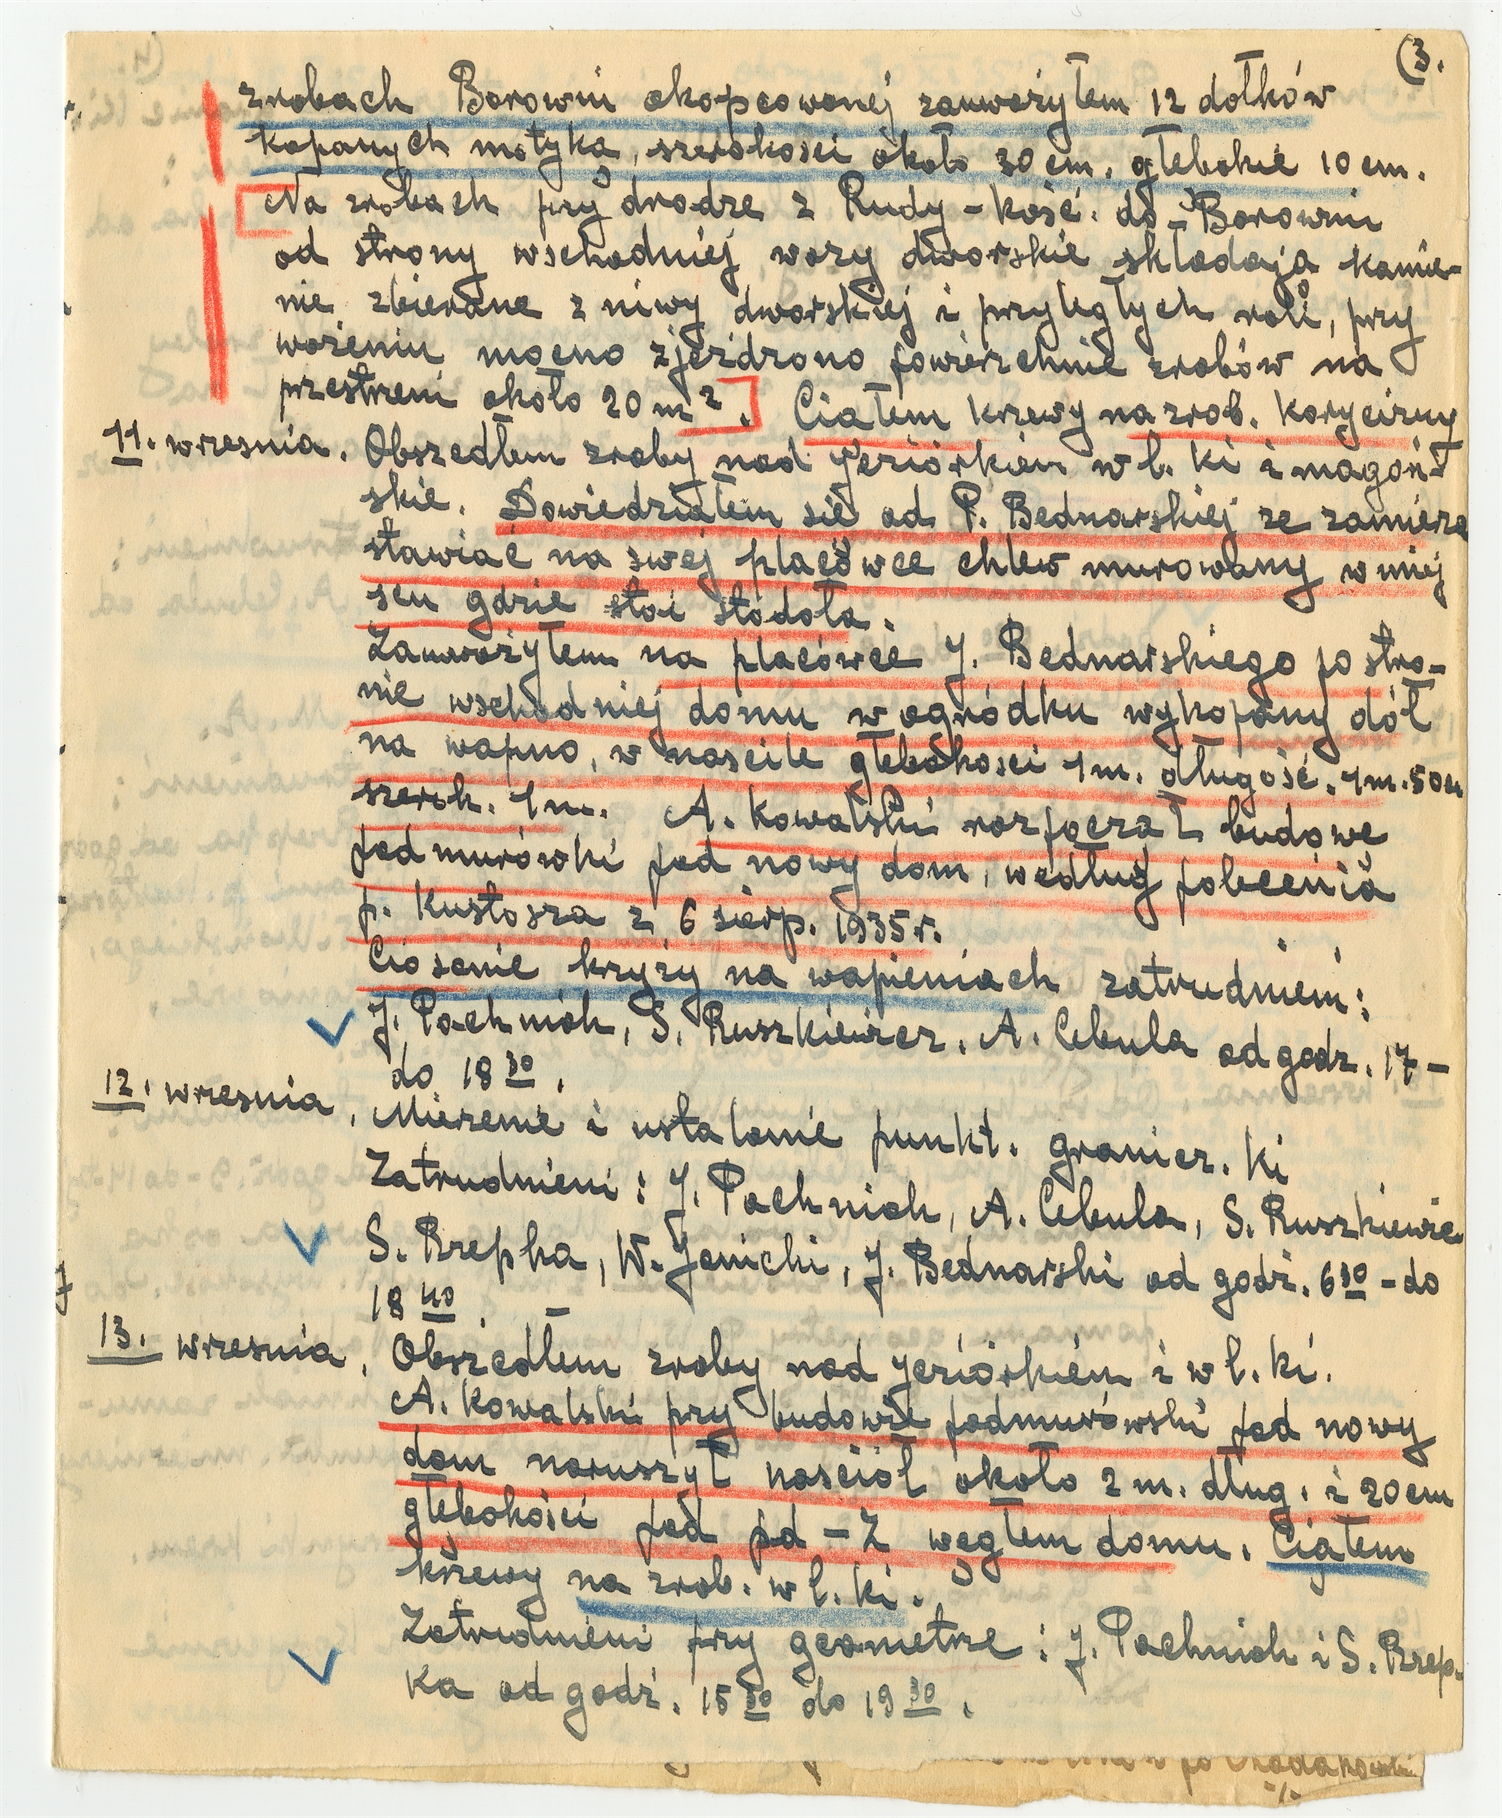 (3.
zrobach Borowni okopcowanej zauważyłem 12 dołków
kopanych motyką, szerokości około 30 cm. głebokie 10 cm.
Na zrobach przy drodze z Rudy-Kość. do Borowni
od strony wschodniej wozy dworskie składają kamie-
nie zbierane z niwy dworskiej i przyległych roli, przy
wożeniu mocno zjeżdzono powierzchnie zrobów na
przestrzeni około 20 m². Ciąłem krzewy na zrob. Korycizny
11. wresnia. Obszedłem zroby nad Jeziórkiem w l. Ki i magoń-
skie. Dowiedziałem się od P. Bednarskiej ze zamierza
stawiać na swej placówce chlew murowany w miej
scu gdzie stoi stodoła.
Zauważyłem na placówce J. Bednarskiego po stro-
nie wschodniej domu w ogródku wykopany dół
na wapno, w nascile głebokosci 1 m. długość. 1 m. 50 cm
szerok. 1 m. A. Kowalski rozpoczął budowe
podmurówki pod nowy dom, według polecenia
p. Kustosza z 6 sierp. 1935 r.
Ciosanie kryzy na wapieniach zatrudnieni:
J. Pachniak, S. Ruszkiewicz. A. Cebula od godz. 17 –
do 18 30.
12. wresnia, Mierzenie i ustalanie punkt. granicz. Ki
Zatrudnieni: J. Pachniak, A. Cebula, S. Ruszkiewic
S. Rzepka, W. Janicki, J. Bednarski od godz. 6 30 – do
18 40. –
13. wresnia, Obszedłem zroby nad Jeziórkiem i w l. Ki.
A. Kowalski przy budowie podmurówski pod nowy
dom naruszył naściół około 2 m. dług. i 20 cm
głebokości pod pd – Z węgłem domu. Ciąłem
krzewy na zrob. w l. Ki.
Zatrudnieni przy geometrze: J. Pachniak i S. Rzep-
ka od godz. 15 30 do 19 30.